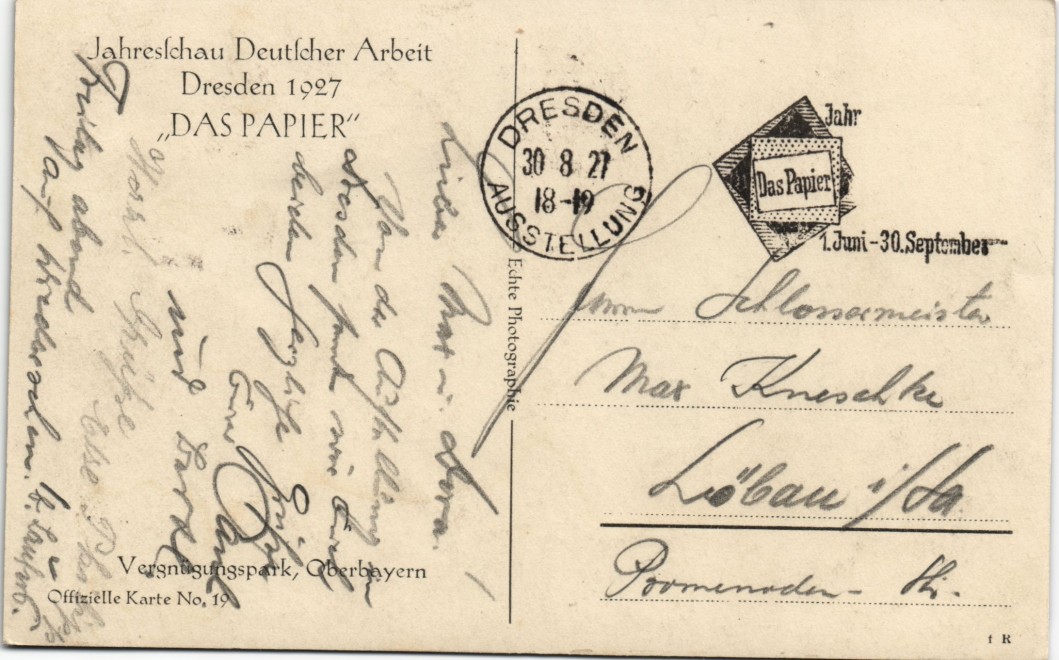 Jahresſchau Deutſcher Arbeit
Dresden 1927
„DAS PAPIER“
DRESDEN
30 8 27
18-19
AUSSTELLUNG
Jahr
Das Papier
1. Juni-30. September
Echte Photographie
Herrn Schlossermeister
Max Kneschke
Löbau i/Sa.
Promenaden- Str.
Lieber Max u. Dora.
Von der Ausstellung in
Dresden senden wir Euch
beiden herzliche Grüße
Eure
und
Herzl. Grüße
Else
Freitag abend
auf Wiedersehen.
Vergnügungspark, Oberbayern
Offizielle Karte No. 19
f R